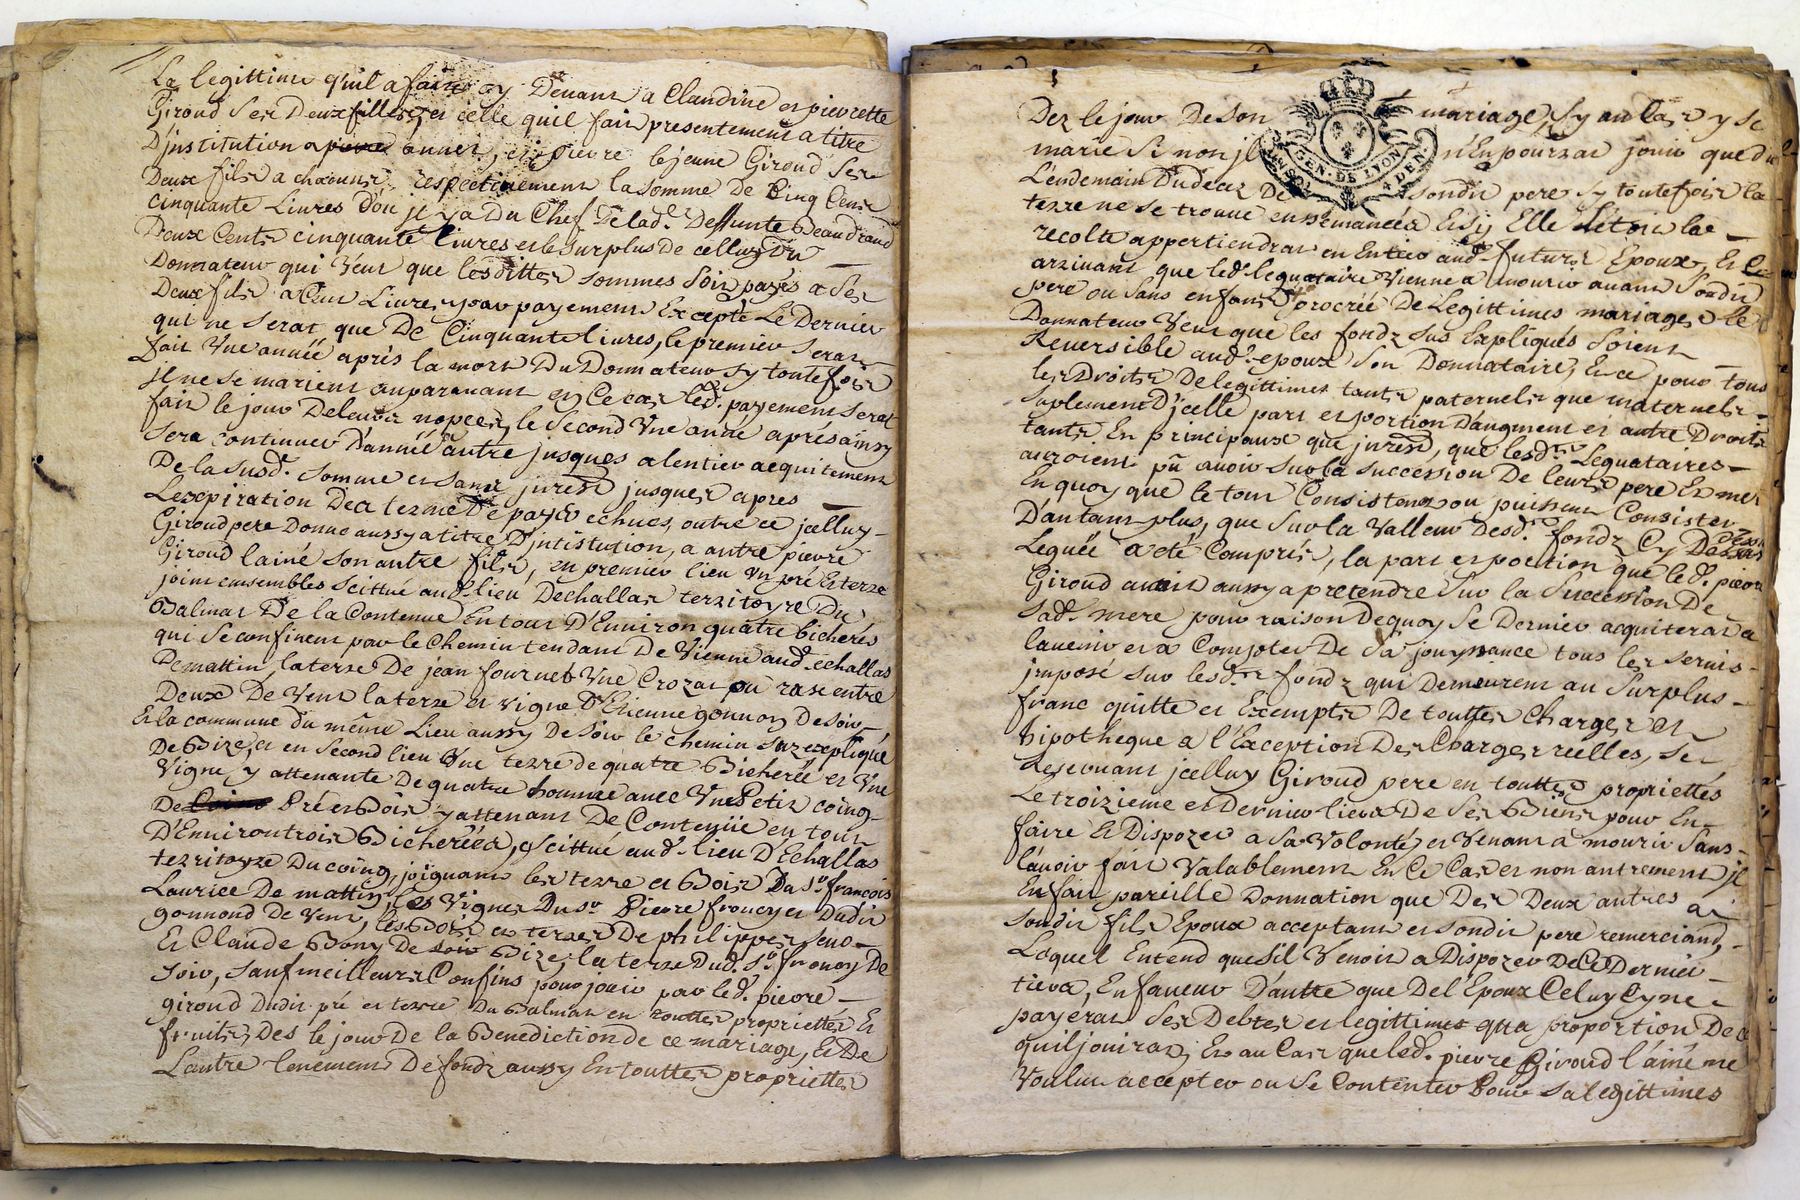 La legittime qu'il a faitte cy Devant a Claudine et pierrette
Giroud Ses Deux filles, et celle quil fait presentement a titre
D'jnstitution annet, et pierre le jeune Giroud Ses
Deux fils a chacuns respectivement la somme De Cinq Cens
cinquante Livres Dou jl y a Du Chef De lad.e Deffunte Beaudrand
Deux Cents cinquante livres et le surplus de celluy Du
Donnateur qui Veut que lesdittes sommes soit payés a Ses
Deux fils a Cent Livres, pour payement Excepté Le Dernier
qui ne serat que De Cinquante livres, le premier serat
fait Vne année aprés la mort Du Donnateur sy toutefois
jl ne se marient auparavant en Ce cas led. payement serat
fait le jour De leurs nopces, le second Vne anné aprés ainsy
Sera continuer D'année a autre jusques a lentier acquitement
De la susd.e somme et sans jnrest jusques apres
Lexpiration Des termes De paÿe echues, outre ce jcelluy
Giroud pere Donne aussy a titre D'jntistution, a autre pierre
Giroud lainé son autre fils, en premier lieu Vn pré Et terre
joint ensembles scittué aud. lieu Dechallas territoyre Du
Balmat De la Contenue En tout D'Environ quatre bicherés
qui se confinent par le Chemin tendant De Vienne aud. echallas
De mattin, la terre De jean fournet Vne Crozat ou rase entre
Deux De Vent la terre et vigne D'Etienne gonnon De soir
Et la commune du méme Lieu aussy De soir le chemin surexpliqué
De Bize, et en second lieu Vne terre de quatre Bicherée et Vne
Vigne y attenante De quatre hommée avec Vn Petit coing
De Pré et Bois y attenant De Contenüe en tout
D'Environ trois Bicherées, scittué aud. lieu D'Echallas
territoyre Du coing, joignant les terre et Bois Du S.r francois
Laurice De mattin, Les Vignes Du S.r Pierre francy et Dudit
gonnond De Vent, les Bois et terres De philippes
Et Claude Bony De soir Bize, la terre Dud. S.r francy De
soir, sauf meilleurs Confins pour jouir par led. pierre
giroud Dudit pré et terre Du Balmat en touttes propriettés Et
fruits, Des le jour De la Benediction de ce mariage, Et De
Lautre tenement De fondz aussy En touttes propriettés
Dez le jour De Son mariage, Sy au Cas y se
marie Si non jl n'En pourrat jouir que du
Lendemain Du decez De sondit pere sy toutefois la
terre ne se trouve ensemancéa Et sy Elle L'étoit la
recolte appertiendrat en Entier aud. futur Epoux, Et Le Cas
arrivant que led. leguataire Vienne a mourir avant Sondit
pere ou sans enfans procrée De Legittimes mariages le
Donnateur Veut que les fondz sus Expliqués Soient
Reversible aud. epoux Son Donnataire, Et ce pour tous
les Droits De legittimes tants paternels que maternels
suplement D'jcelle part et portion D'augment et autre Droits
tants En principaux que jnrest, que lesd.es Leguataires
auroient pû avoir sur la succession De leurs pere Et mere
En quoy que le tout Consistent ou puissent Consister
D'autant plus, que Sur la Valleur desd.s fondz Cy Dessus
Leguée a été Compris, la part et portion que led. pierre
Giroud avait aussy a pretendre Sur la Succession De
Sad. mere pour raison Dequoy Se Dernier acquiterat a
lavenir et a Compter De Sa jouyssance tous les servis
jmposé sur lesd.es fondz qui Demeurent au Surplus
franc quitte et Exempts De touttes Charges Et
hipotheque a l'Exception Des Charges reelles, se
Reservant jcelluy Giroud pere en touttes propriettés
Le troizieme et Dernier lieva De Ses Biens pour En
faire Et Dispozer a Sa Volonté et Venant a mourir Sans
l'avoir fait Valablement En Ce Cas et non autrement jl
En fait pareille Donnation que Des Deux autres a
sondit fils Epoux acceptant et sondit pere remerciand,
Lequel Entend que Sil Venoit a Dispozer De Ce Dernier
tieva, En faveur D'autre que De l'Epoux Celuy Cy ne
payerat Ses Debtes et legittimes qu'a proportion De ce
quil jouirat, Et au Cas que led. pierre Giroud l'ainé ne
Voulut accepter ou Se Contenter Pour Sa legittimes
GEN. DE LYON